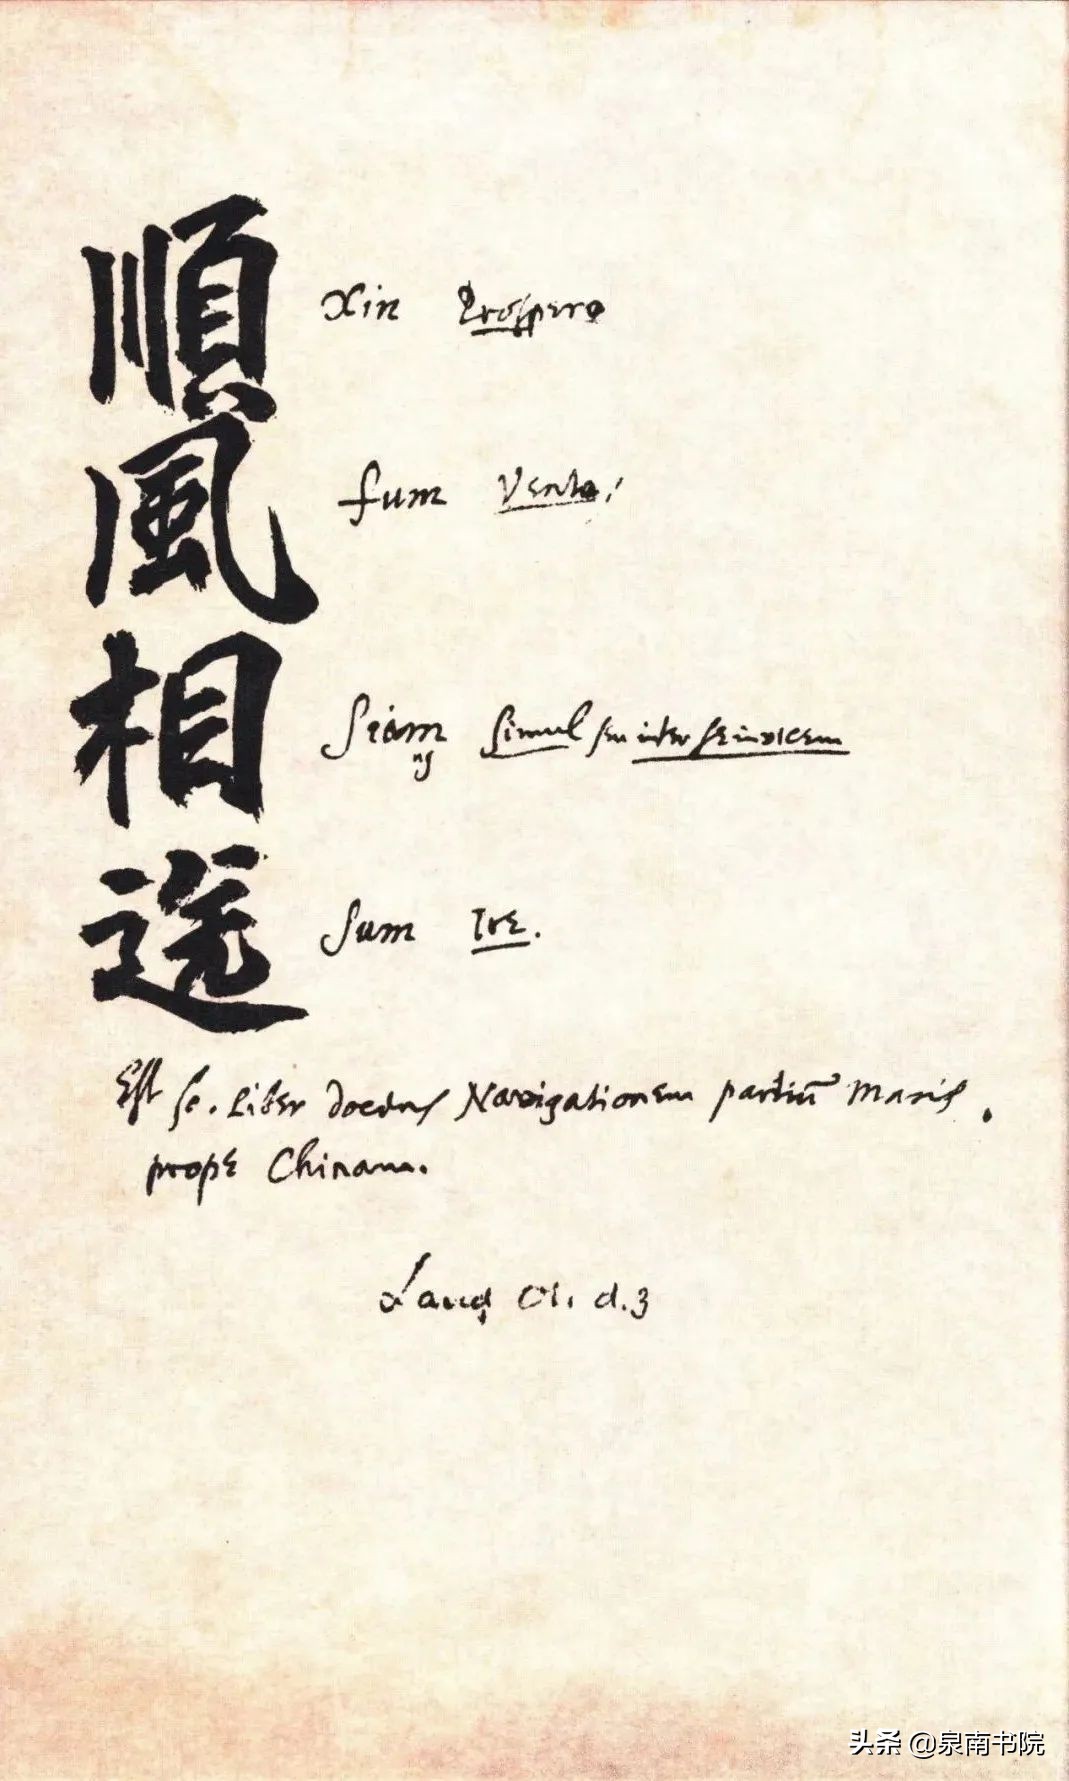 順 Xin Prospero
風 fum Vento;
相 Siam ng Simul seu inter se invicem
送 Sum Ire.
Est sc. Liber docens Navigationem partiū Maris
prope Chinam.
Laud Or. d.3
头条 @泉南书院